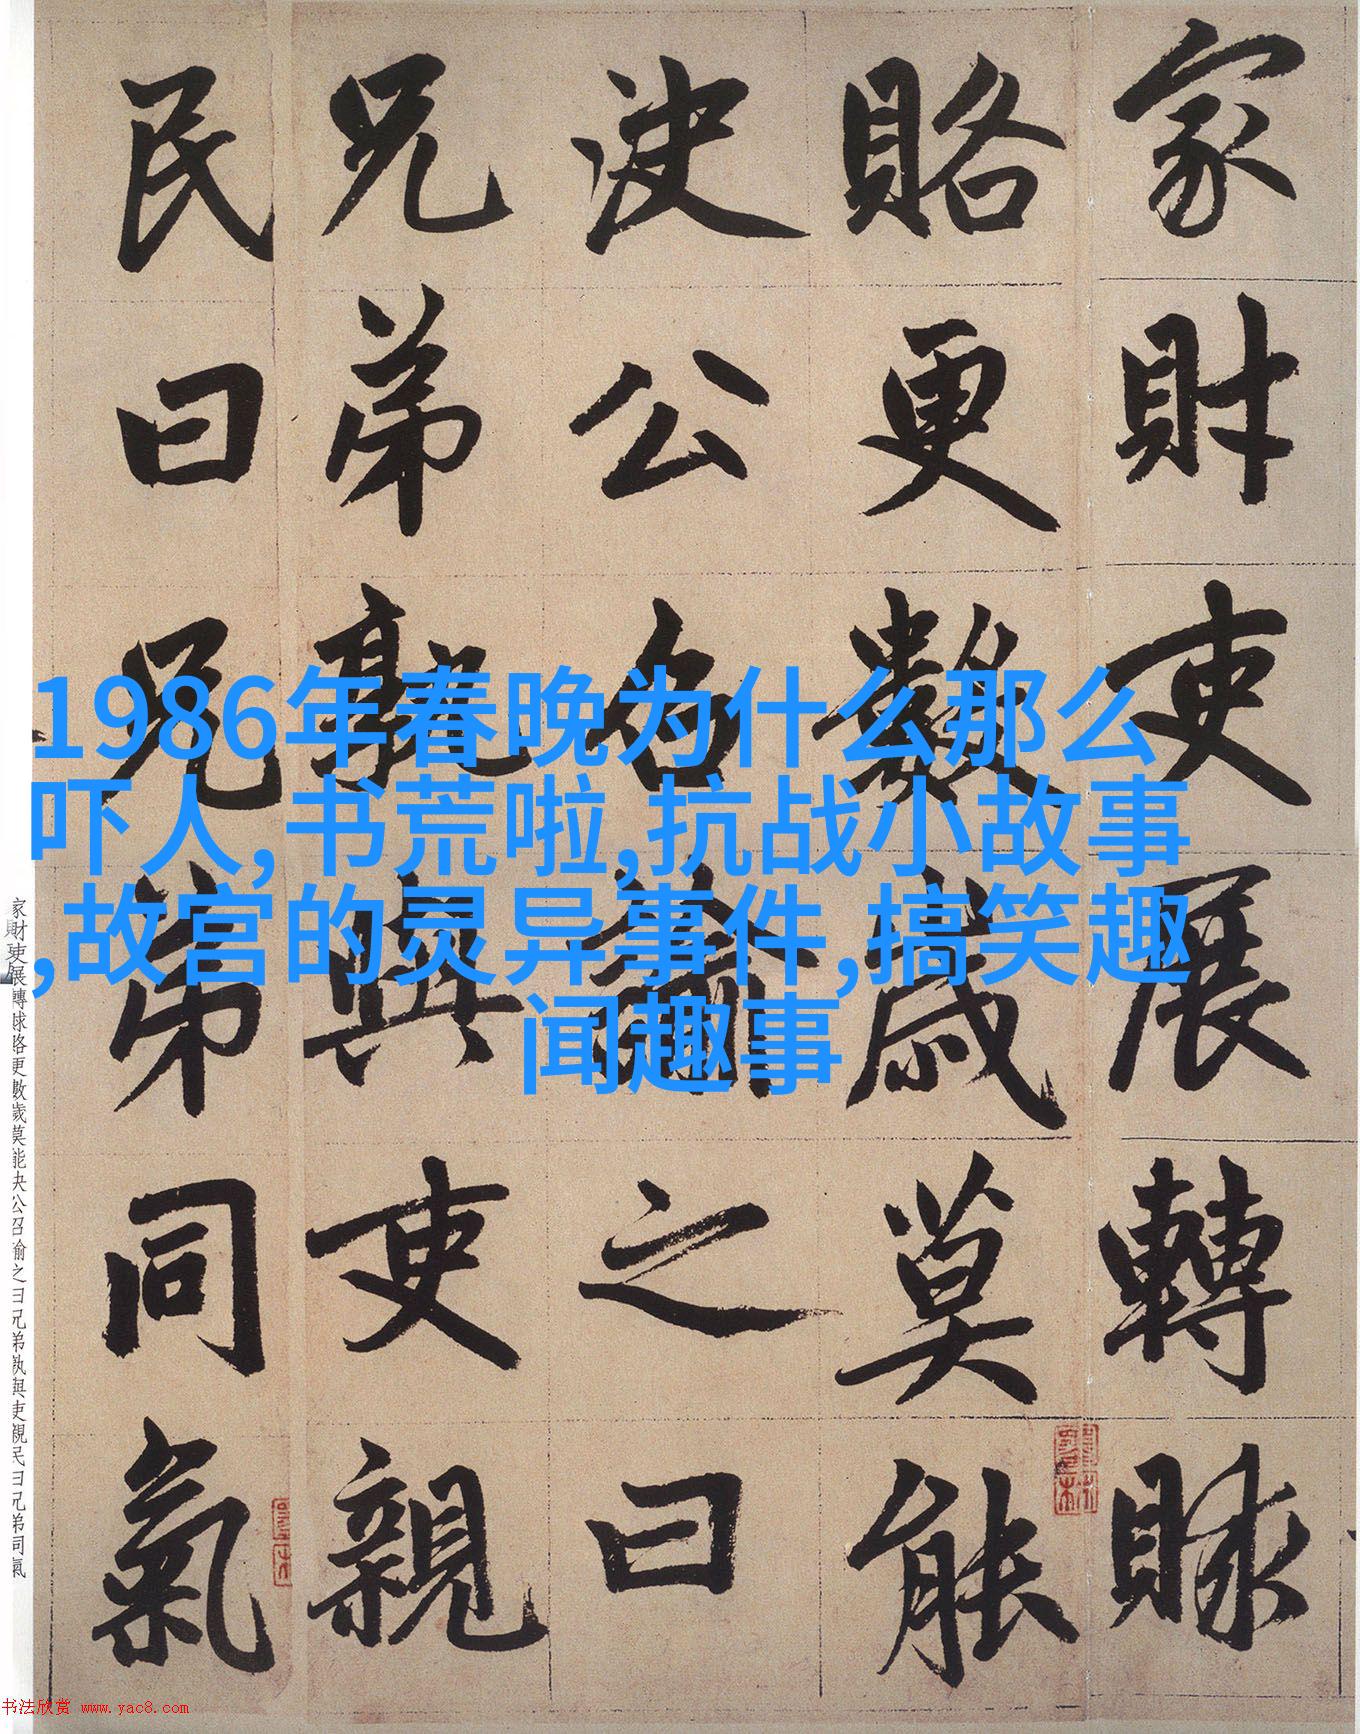 家財吏展轉賕
賂更數歲莫能
決公召諭之曰
兄弟孰與吏親
民曰兄弟同氣
1986年春晚为什么那么
吓人,书荒啦,抗战小故事
,故宫的灵异事件,搞笑趣
闻趣事
家財吏展轉賕賂更數歲莫能決公召諭之曰兄弟孰與吏親民曰兄弟同氣
书法欣赏 www.yac8.com